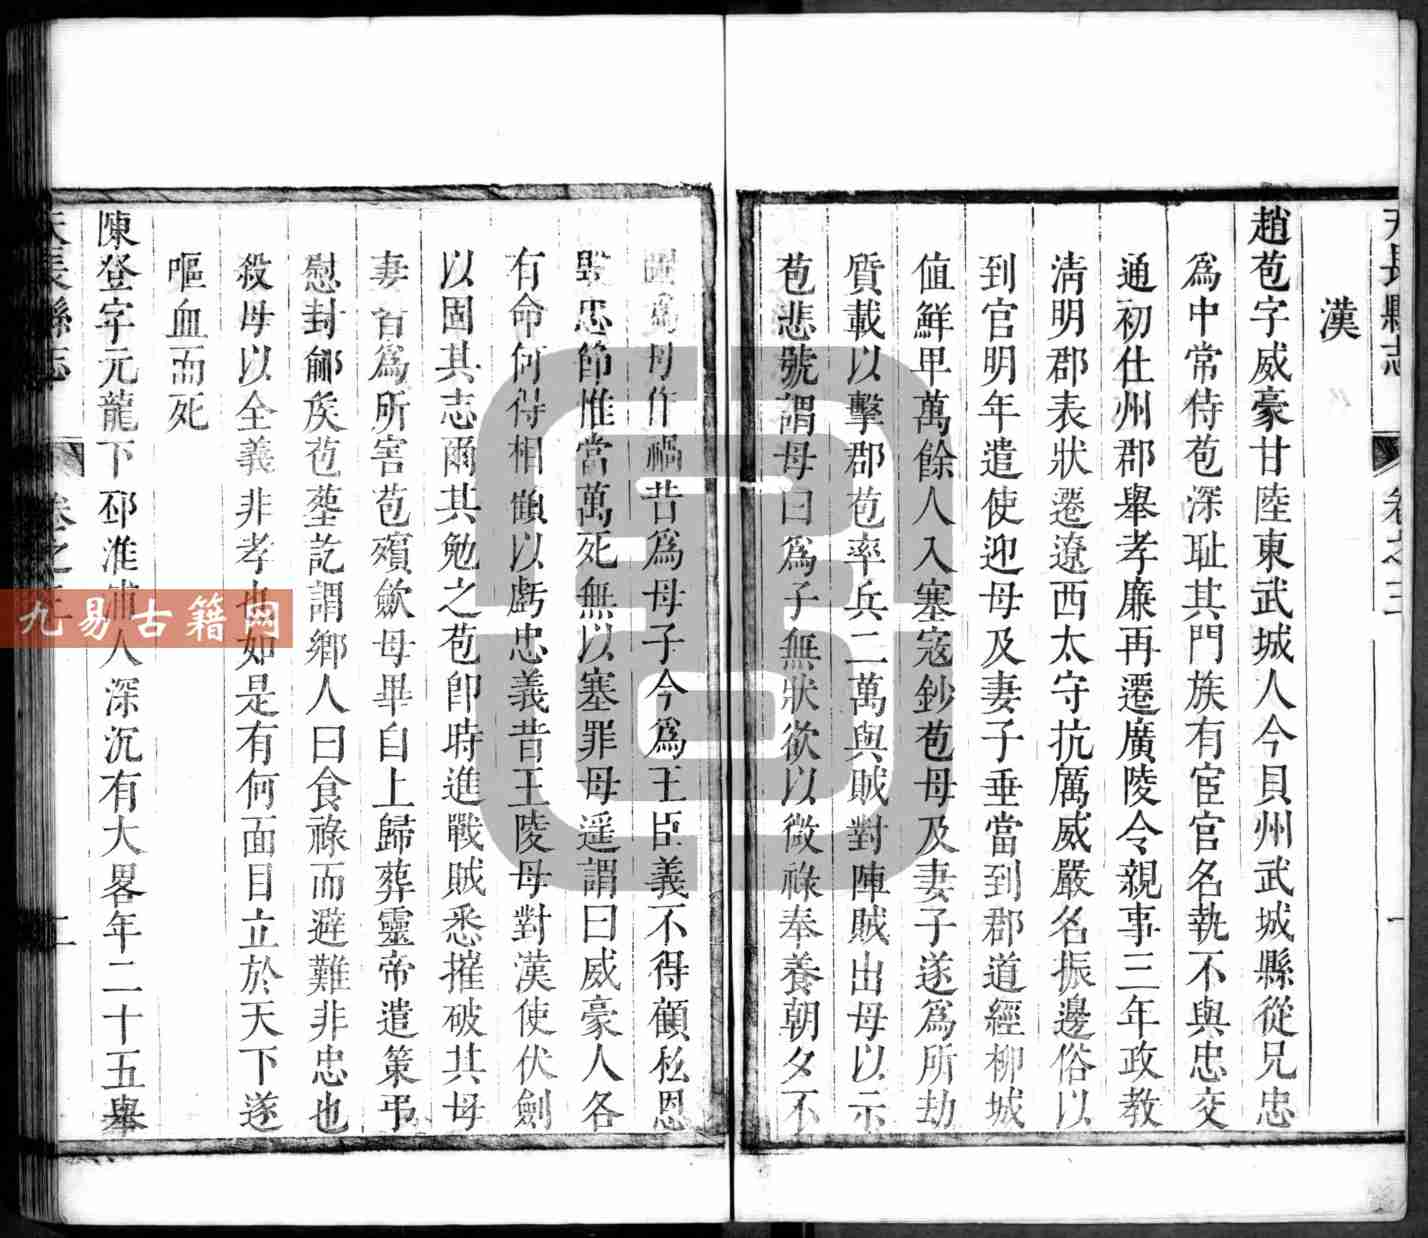 天長縣志 卷之三 一
漢
趙苞字威豪甘陸東武城人今貝州武城縣從兄忠
爲中常侍苞深耻其門族有宦官名執不與忠交
通初仕州郡舉孝廉再遷廣陵令親事三年政教
淸明郡表狀遷遼西太守抗厲威嚴名振邊俗以
到官明年遣使迎母及妻子垂當到郡道經柳城
值鮮卑萬餘人入塞寇鈔苞母及妻子遂爲所劫
質載以擊郡苞率兵二萬與賊對陣賊出母以示
苞悲號謂母曰爲子無狀欲以微祿奉養朝夕不
圖爲母作禍昔爲母子今爲王臣義不得顧私恩
毀忠節惟當萬死無以塞罪母遥謂曰威豪人各
有命何得相顧以虧忠義昔王陵母對漢使伏劍
以固其志爾其勉之苞卽時進戰賊悉摧破其母
妻皆爲所害苞殯歛母畢自上歸葬靈帝遣策弔
慰封鄃矦苞塟訖謂鄉人曰食祿而避難非忠也
殺母以全義非孝也如是有何面目立於天下遂
嘔血而死
陳登字元龍下邳淮浦人深沉有大畧年二十五舉
天長縣志 卷之三 二
九易古籍网